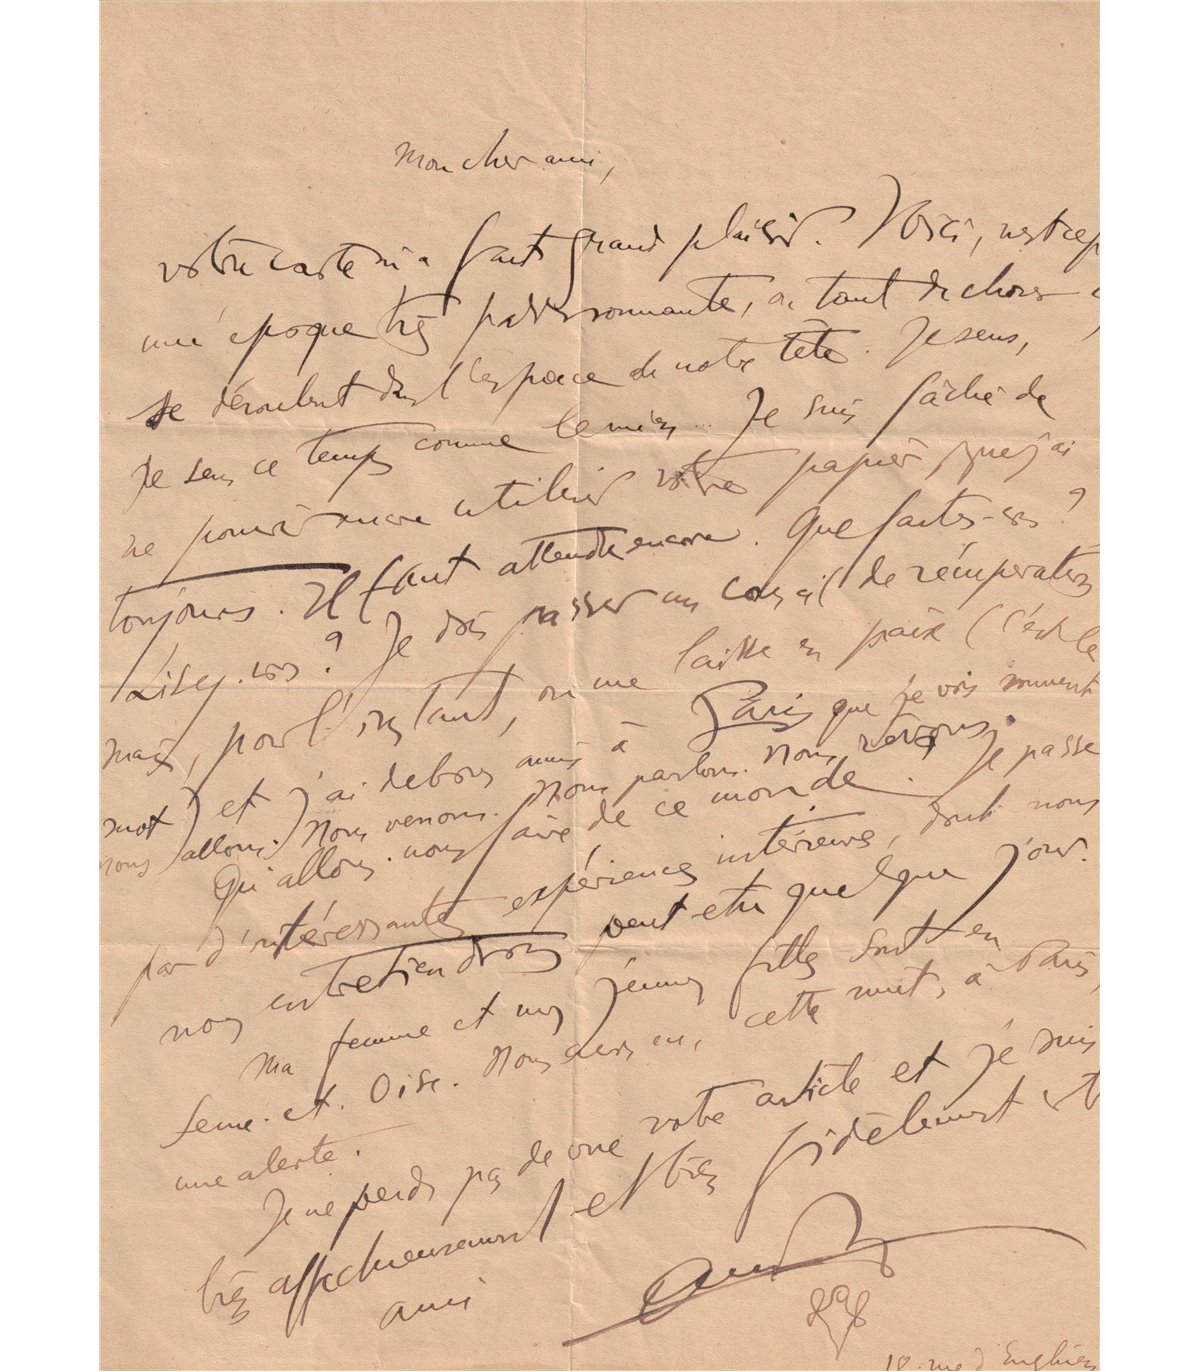 Mon cher ami,
votre carte m'a fait grand plaisir. Voici, n'est ce p
une époque très passionnante, où tant de choses
se déroulent dans l'espace de notre tête. Je sens,
Je sens ce temps comme le mien... Je suis fâché de
ne pouvoir encore utiliser votre papier, que j'ai
toujours. Il faut attendre encore. Que faites-vous ?
Lisez-vous ? Je dois passer un conseil de récupération
mais, pour l'instant, on me laisse en paix (c'est le
mot) et j'ai de bons amis à Paris que je vois souvent
nous allons. Nous venons. Nous parlons. Nous rêvons.
Qu'allons-nous faire de ce monde. Je passe
par d'intéressantes expériences intérieures, dont nous
nous entretiendrons peut-etre quelque jour.
Ma femme et mes jeunes filles sont en
Seine-et-Oise. Nous avons eu, cette nuit, à Paris,
une alerte.
Je ne perds pas de vue votre article et je suis
très affectueusement et très fidèlement vot
ami
18. rue d'Enghien